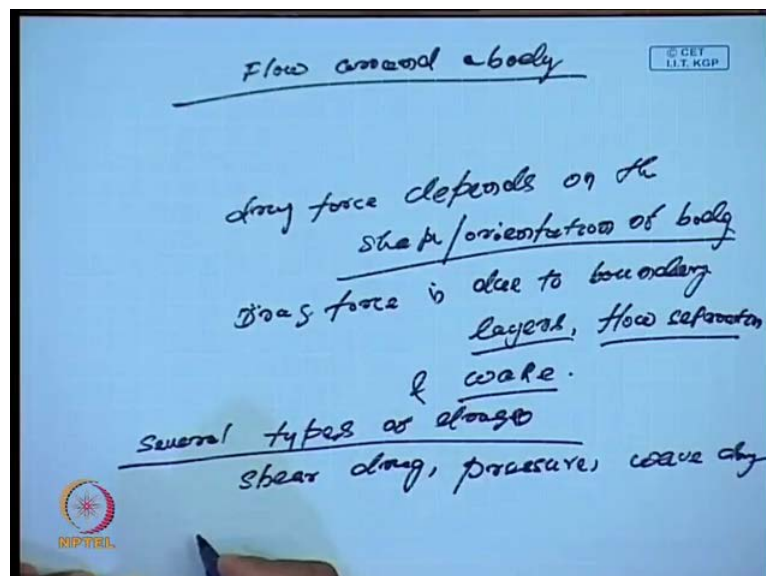 Flow around a body
© CET
I.I.T. KGP
drag force depends on the
shape/orientation of body
Drag force is due to boundary
layers, flow separation
& wake.
Several types of drags
shear drag, pressure, wave drag
NPTEL